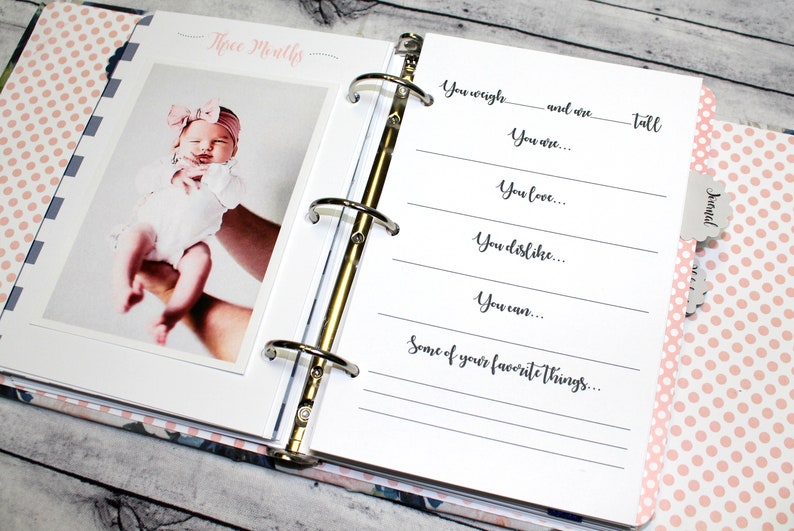 Three Months
You weigh______ and are______tall
You are...
You love...
You dislike...
You can...
Some of your favorite things...
Journal